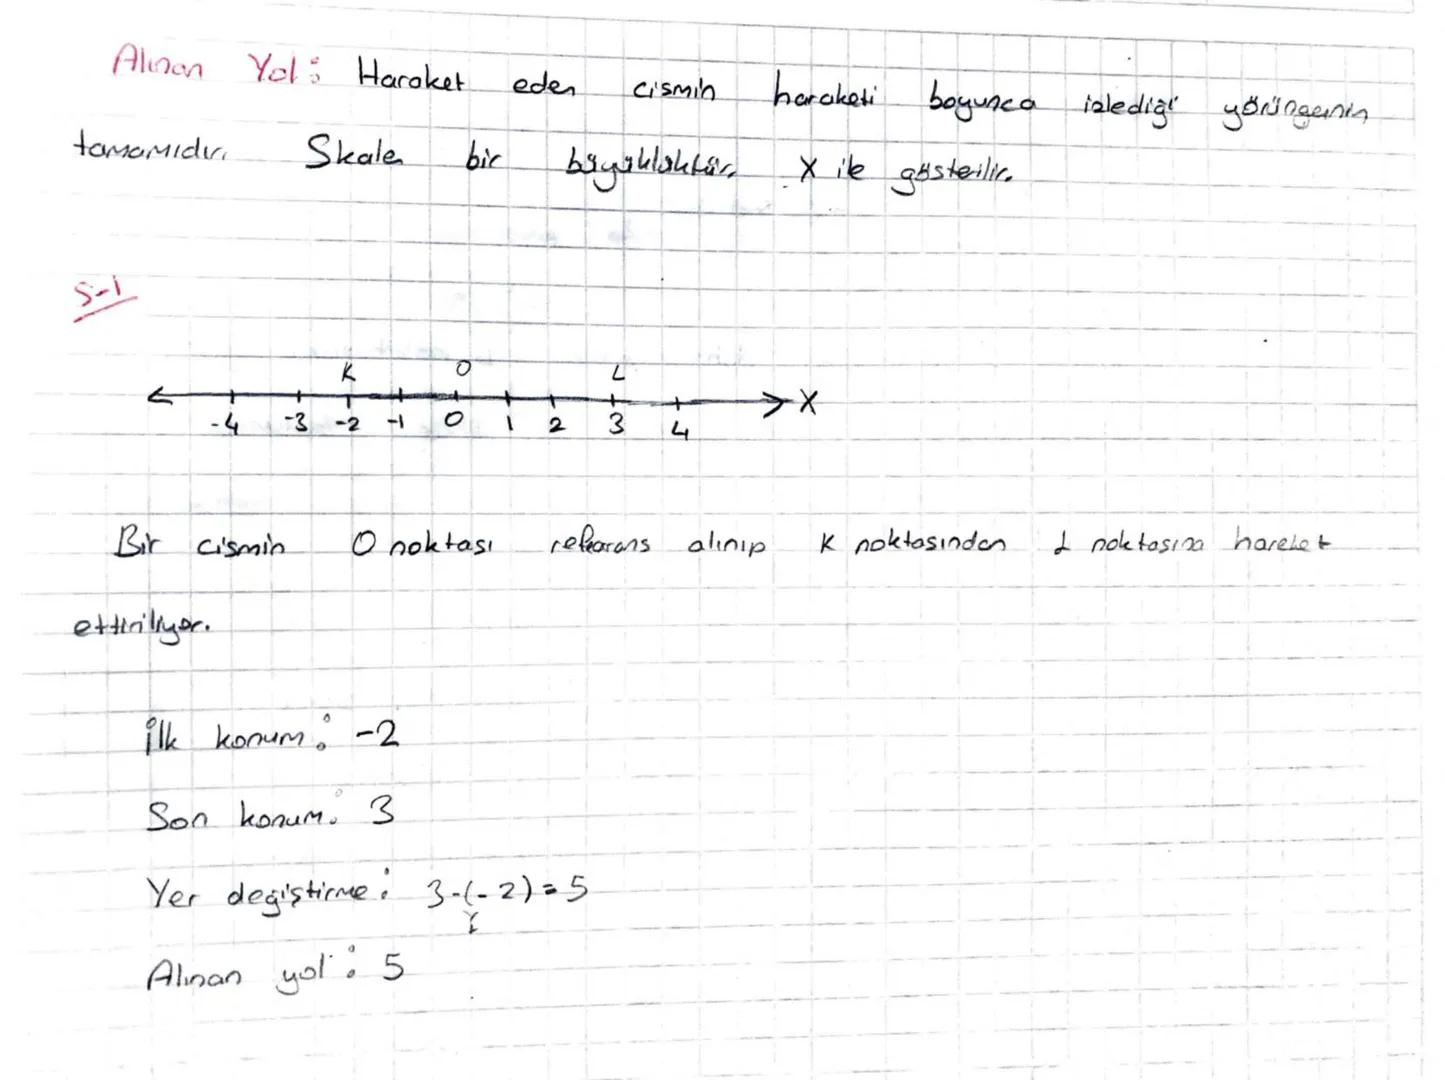 Alınan Yol: Haraket eden cismin haraketi boyunca izlediği yörüngenin
tamamıdır. Skaler bir büyüklüktür. X ile gösterilir.
S-1
K O L
-4 -3 -2 -1 0 1 2 3 4 X
Bir cismin O noktası referans alınıp K noktasından L noktasına hareket
ettiriliyor.
İlk konum: -2
Son konum: 3
Yer değiştirme: 3-(-2)=5
Alınan yol: 5